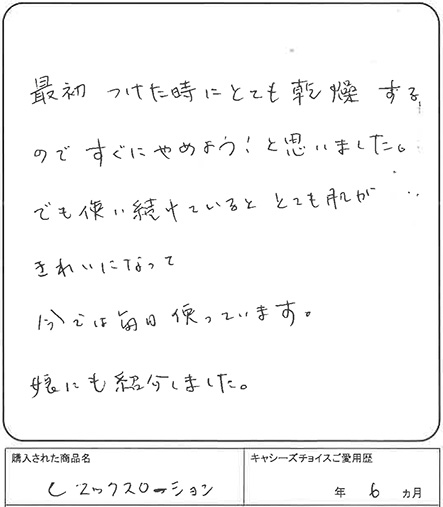 最初 つけた時にとても乾燥する
のですぐにやめよう!と思いました。
でも使い続けていると とても肌が
きれいになって
今では毎日使っています。
娘にも紹介しました。
購入された商品名
キャシーズチョイスご愛用歴
Cマックスローション
年 6 ヵ月